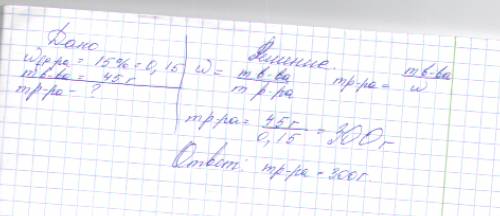 Дано
wр-ра = 15% = 0,15
mв-ва = 45г
mр-ра - ?
Решение.
w = mв-ва / mр-ра mр-ра = mв-ва / w
mр-ра = 45г / 0,15 = 300г
Ответ: mр-ра = 300г.